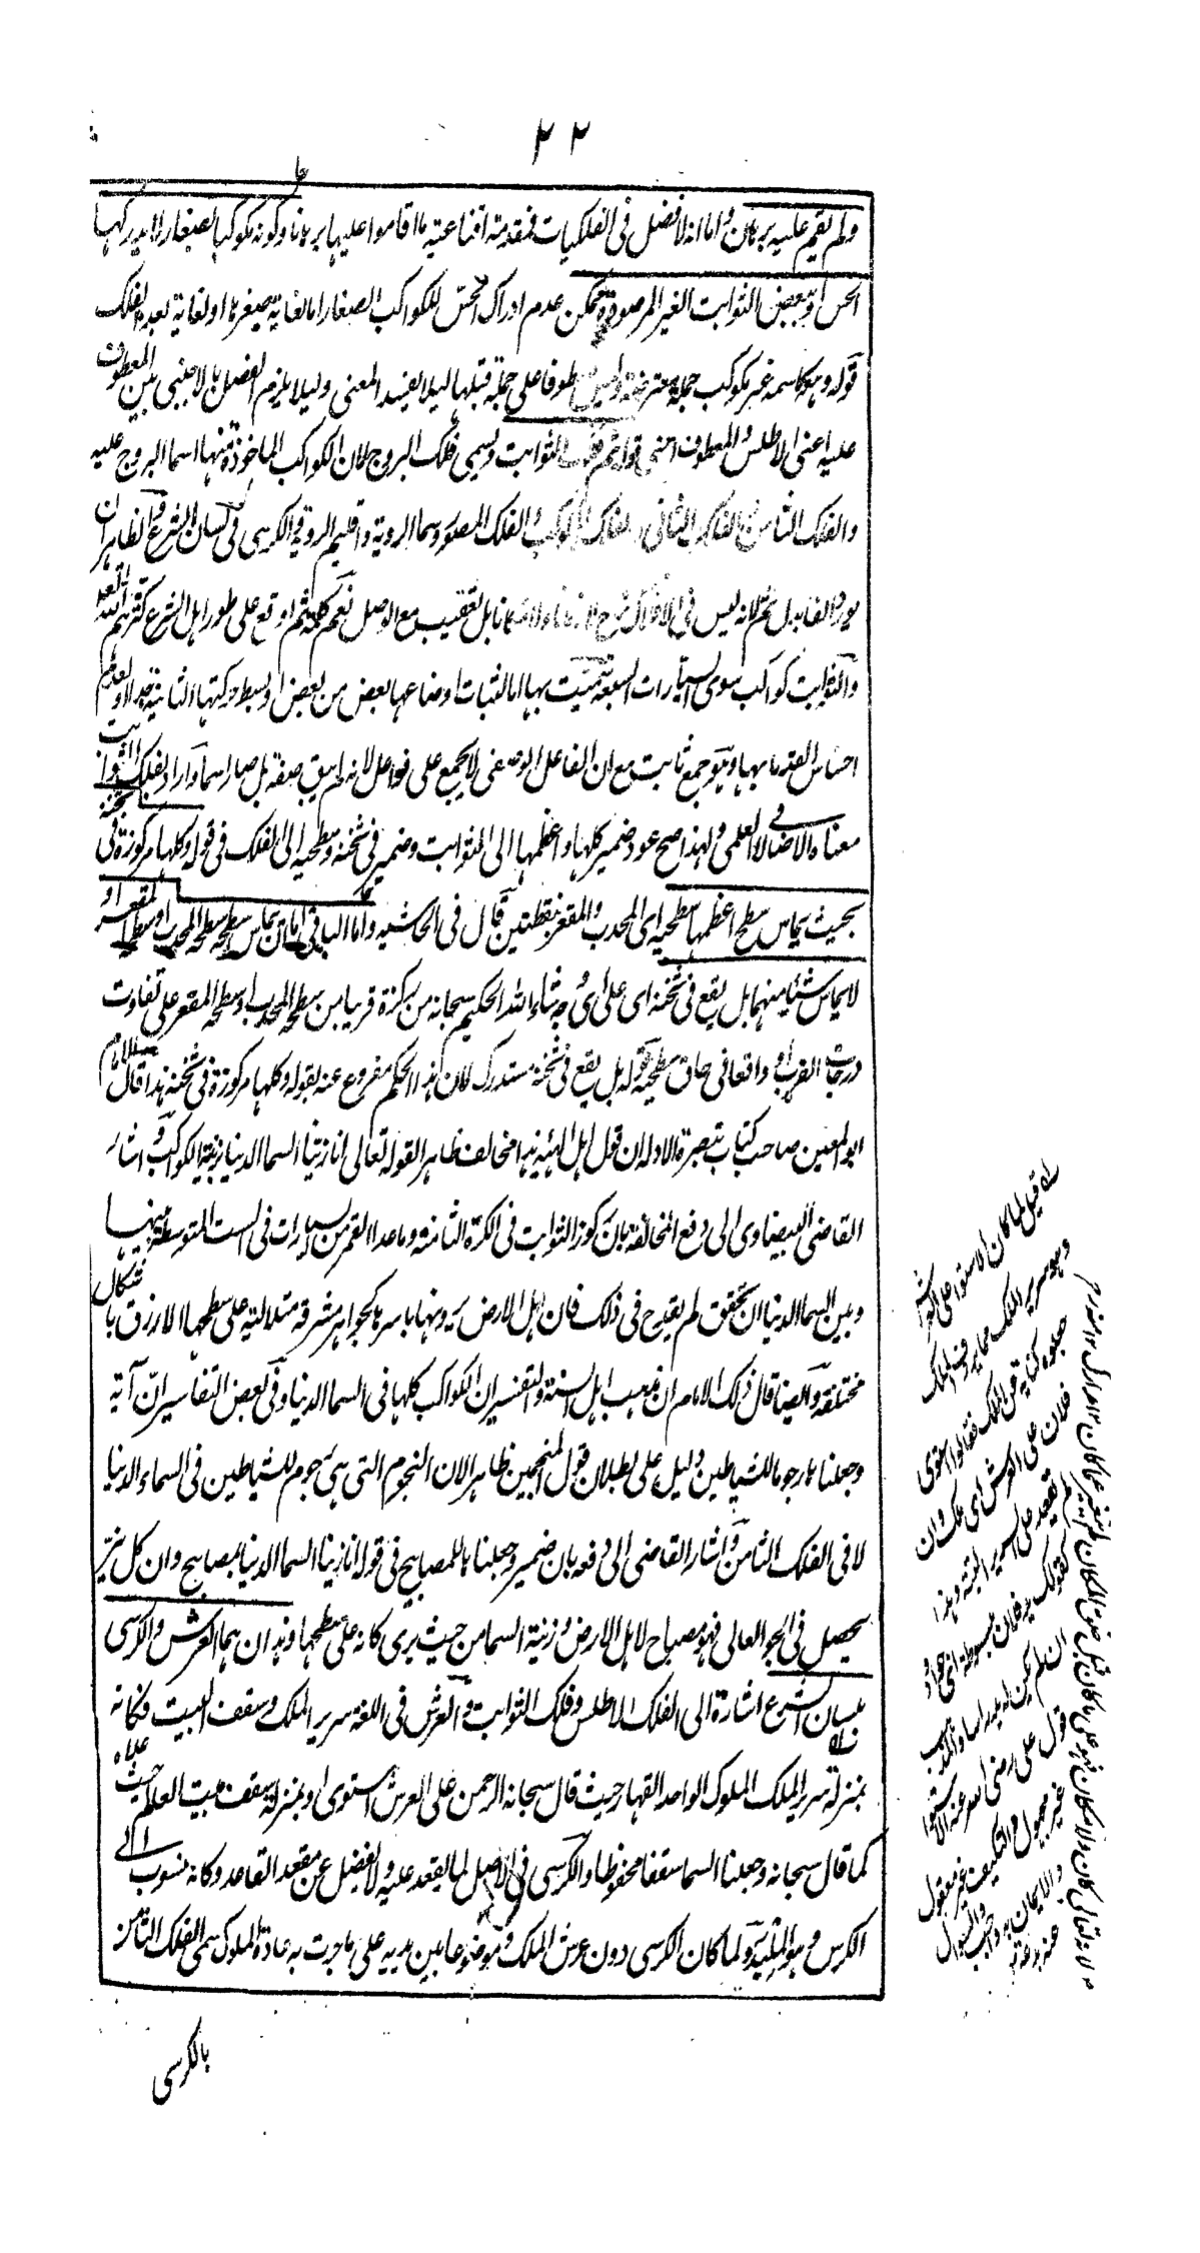 ٢٢
ولم يقم عليه برهان واما انه لا فضل فى الفلكيات فمقدمة اقناعية ما اقاموا عليها برهانا وكونه مكوكبا بصغار لا يدركها
الحس او ببعض الثوابت الغير المرصودة ممكن عدم ادراك الحس للكواكب الصغار اما لغاية صغرها او لغاية بعد الفلك
قوله وهو كاسمه غير مكوكب جملة معترضة وليس معطوفا على جملة قبلها ليلا يفسد المعنى وليلا يلزم الفصل بالاجنبى بين المعطوف
عليه اعنى الاطلس والمعطوف اعنى قوله ثم فلك الثوابت ويسمى فلك البروج لان الكواكب الماخوذة منها اسما البروج عليه
والفلك الثامن والفلك الثانى وفلك الكواكب والفلك المصور وسما الروية واقليم الروية والكرسى فى لسان الشرع قيل الظاهر ان
يورد الفا بدل ثم لانه ليس فى الافلاك تراخ بل تعقيب مع الوصل نعم كلمة ثم اوقع على طور اهل الشرع كثرهم الله تعالى
والثوابت كواكب سوى السيارات السبعة سميت بها اما لثبات اوضاعها بعض من بعض او لبطء حركتها الثانية جدا او لعدم
احساس القدما بها وهو جمع ثابت مع ان الفاعل الوصفى لا يجمع على فواعل لانه لم يبق صفة بل صار اسما واراد بفلك الثوابت
معناه الاضافى لا العلمى ولهذا صح عود ضمير كلها واعظمها الى الثوابت وضمير فى ثخنه وسطحيه الى الفلك فى قوله وكلها مركوزة فى ثخنه
بحيث يماس سطح اعظمها سطحيه اى المحدب والمقعر بنقطتين قال فى الحاشيه واما الباقى اما ان يماس سطحه سطحه المحدب او سطحه المقعر او
لا يماس شيئا منهما بل يقع فى ثخنه اى على اى وجه شاء الله الحكيم سبحانه من مركزة قريبا من سطحه المحدب او سطحه المقعر على تفاوت
درجات القرب او واقعا فى حاق سطحيه قوله بل يقع فى ثخنه مستدرك لان هذا الحكم مفروغ عنه بقوله وكلها مركوزة فى ثخنه هذا قال الامام
ابو المعين صاحب كتاب تبصرة الادلة ان قول اهل الهيئة هذا مخالف ظاهرا لقوله تعالى انا زينا السما الدنيا بزينة الكواكب واشار
القاضى البيضاوى الى دفع المخالفة بان ركوز الثوابت فى الكرة الثامنة وما عدا القمر من السيارات فى الست المتوسطة بينها
وبين السما الدنيا ان تحقق لم يقدح فى ذلك فان اهل الارض يرونها باسرها كجواهر مشرقة متلالئة على سطحها الازرق باشكال
مختلفة وايضا قال ذلك الامام ان مذهب اهل السنة والتفسير ان الكواكب كلها فى السما الدنيا وفى بعض التفاسير ان آية
وجعلناها رجوما للشياطين دليل على بطلان قول المنجمين ظاهرا لان النجوم التى هى رجوم للشياطين فى السماء الدنيا
لا فى الفلك الثامن واشار القاضى الى دفعه بان ضمير وجعلناها للمصابيح فى قوله انا زينا السما الدنيا بمصابيح وان كل نير
يحصل فى الجو العالى فهو مصباح لاهل الارض وزينة السما من حيث يرى كانه على سطحها وهذان هما العرش والكرسى
بلسان الشرع اشارة الى الفلك الاطلس وفلك الثوابت والعرش فى اللغة سرير الملك وسقف البيت فكانه
بمنزلة سرير لملك الملوك الواحد القهار حيث قال سبحانه الرحمن على العرش استوى او بمنزلة سقف بيت العالم حيث
كما قال سبحانه وجعلنا السما سقفا محفوظا والكرسى فى الاصل لما يقعد عليه ولا يفضل عن مقعد القاعد وكانه منسوب الى
الكرس وهو التلبيد ولما كان الكرسى دون عرش الملك وموضوعا بين يديه على ما جرت به عادة الملوك سمى الفلك الثامن
بالكرسى
قيل لما كان الاستوا على العرش
وهو سرير الملك مما يردف الملك
جعلوه كناية عن الملك فقالوا استوى
فلان على العرش اى ملك وان
لم يقعد على السرير البتة وهذا
كقولك يد فلان مبسوطة اى جواد
ان لم يكن له يد اساسا والمذهب
قول على رضى الله عنه الاستوا
غير مجهول والتكييف غير معقول
والايمان به واجب والسوال
عنه بدعة